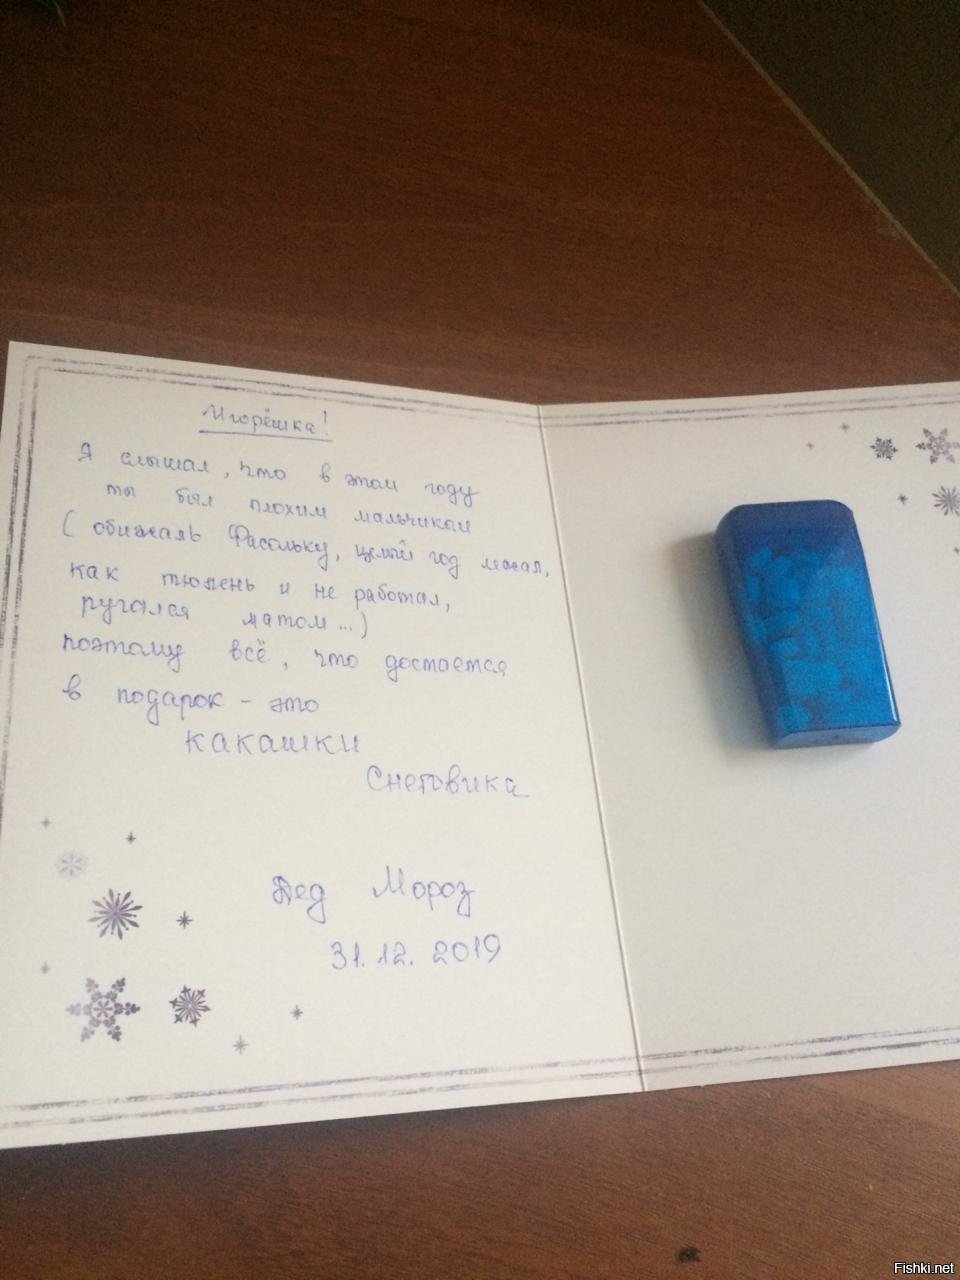 Игорёшка!
Я слышал, что в этом году
ты был плохим мальчиком
( обижаль Фасольку, целый год лежал,
как тюлень и не работал,
ругался матом...)
поэтому всё, что достается
в подарок - это
какашки
Снеговика
Дед Мороз
31.12.2019
Fishki.net